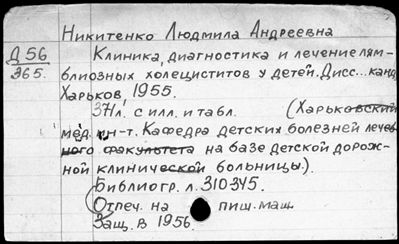 Никитенко Людмила Андреевна
Д 56
365.
Клиника, диагностика и лечение лям-
блиозных холециститов у детей. Дисс... канд
Харьков, 1955.
371л. с илл. и табл. (Харьковский
мед. ин-т. Кафедра детских болезней лечеб
ного факультета на базе детской дорож-
ной клинической больницы.).
Библиогр. л. 310-345.
Отпеч. на пиш. маш.
Защ. в 1956.